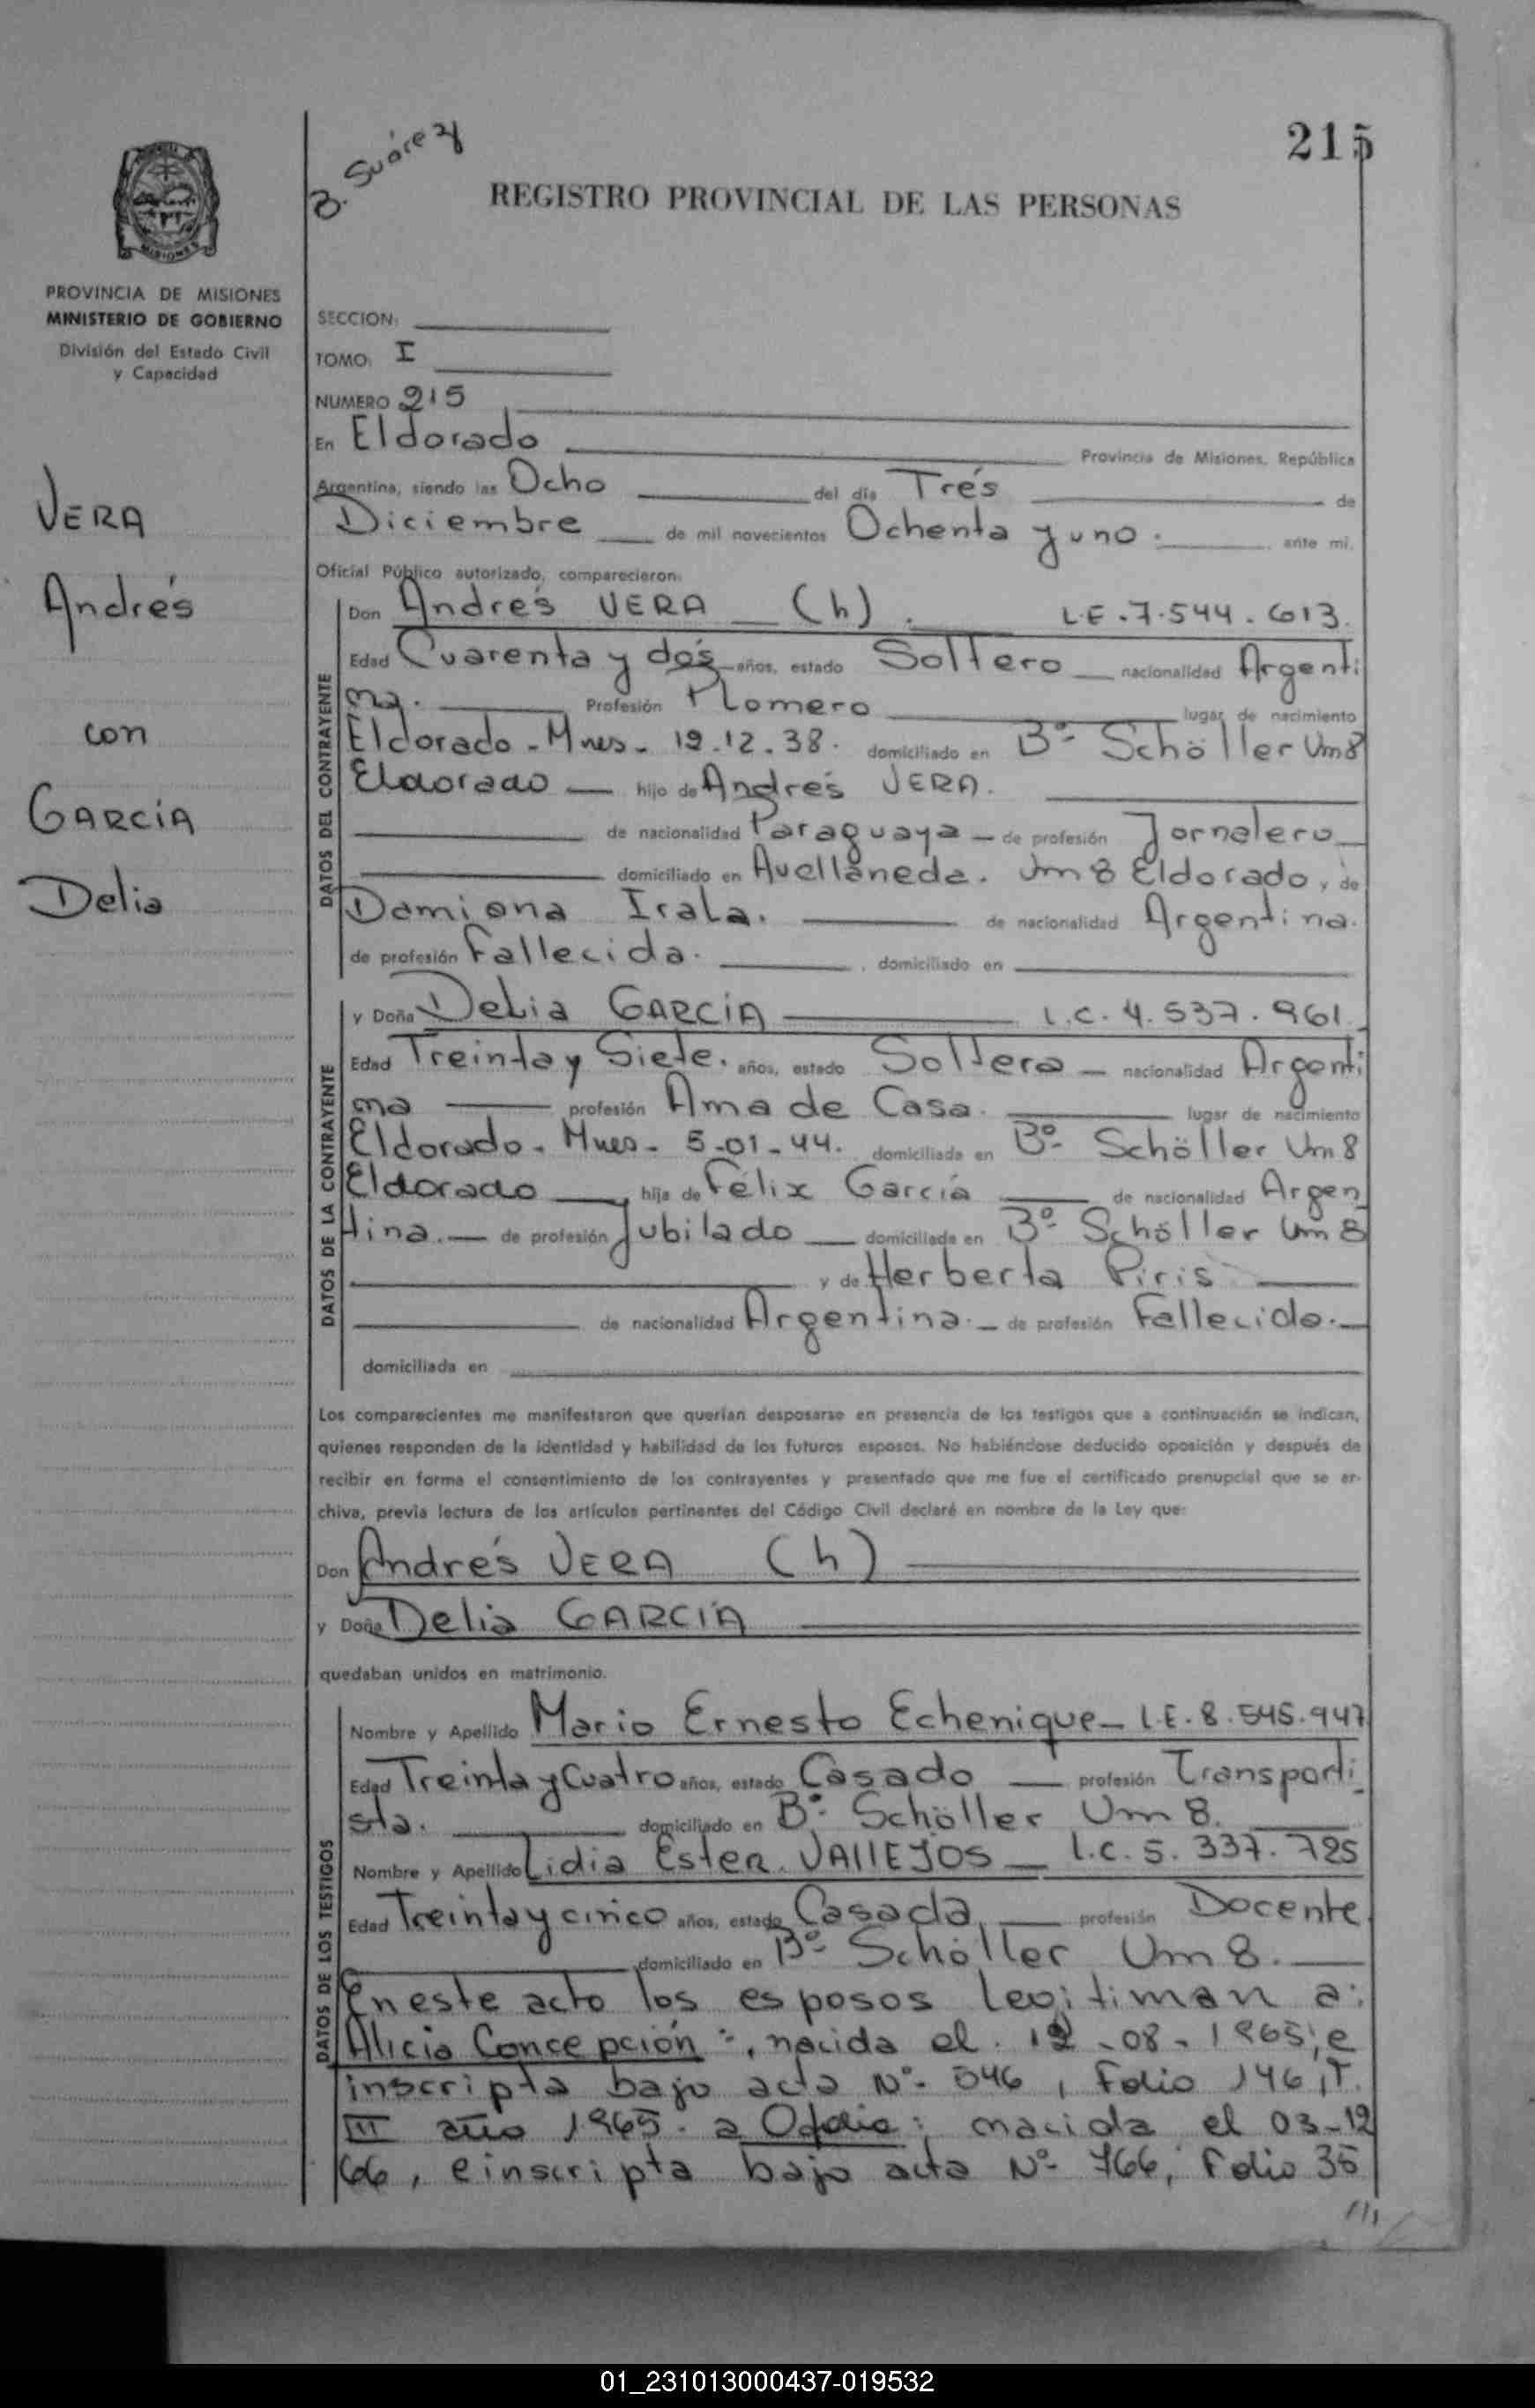 215
B. Suárez
REGISTRO PROVINCIAL DE LAS PERSONAS
MISIONES
PROVINCIA DE MISIONES
MINISTERIO DE GOBIERNO
División del Estado Civil
y Capacidad
VERA
Andrés
con
GARCÍA
Delia
SECCION:
TOMO: I
NUMERO 215
En Eldorado Provincia de Misiones, República
Argentina, siendo las Ocho del día Trés de
Diciembre de mil novecientos Ochenta y uno. ante mí,
Oficial Público autorizado, comparecieron:
DATOS DEL CONTRAYENTE
Don Andrés VERA (h). L.E. 7.544.613.
Edad Cuarenta y dos años, estado Soltero nacionalidad Argenti
na. Profesión Plomero lugar de nacimiento
Eldorado - Mnes - 19.12.38. domiciliado en Bº Schöller Km8
Eldorado hijo de Andrés VERA.
de nacionalidad Paraguaya de profesión Jornalero
domiciliado en Avellaneda. Km 8 Eldorado, y de
Damiana Irala. de nacionalidad Argentina.
de profesión Fallecida. , domiciliado en
DATOS DE LA CONTRAYENTE
y Doña Delia GARCÍA L.C. 4.537.961.
Edad Treinta y Siete. años, estado Soltera nacionalidad Argenti
na profesión Ama de Casa. lugar de nacimiento
Eldorado - Mnes - 5-01-44. domiciliada en Bº Schöller Km 8
Eldorado, hija de Félix García de nacionalidad Argen
tina. de profesión Jubilado domiciliado en Bº Schöller Km 8
y de Herberta Piris
de nacionalidad Argentina. de profesión Fallecida.
domiciliada en
Los comparecientes me manifestaron que querían desposarse en presencia de los testigos que a continuación se indican,
quienes responden de la identidad y habilidad de los futuros esposos. No habiéndose deducido oposición y después de
recibir en forma el consentimiento de los contrayentes y presentado que me fue el certificado prenupcial que se ar-
chiva, previa lectura de los artículos pertinentes del Código Civil declaré en nombre de la Ley que:
Don Andrés VERA (h)
y Doña Delia GARCÍA
quedaban unidos en matrimonio.
DATOS DE LOS TESTIGOS
Nombre y Apellido Mario Ernesto Echenique - L.E. 8.545.947
Edad Treinta y Cuatro años, estado Casado profesión Transporti
sta. domiciliado en Bº Schöller Km 8.
Nombre y Apellido Lidia Ester VALLEJOS L.C. 5.337.785
Edad Treinta y cinco años, estado Casada, profesión Docente
domiciliado en Bº Schöller Km 8.
En este acto los esposos legitiman a:
Alicia Concepción :, nacida el -08-1965, e
inscripta bajo acta Nº 546, Folio 146, T.
III año 1965. a : nacida el 03-12
66, e inscripta bajo acta Nº 766, Folio 35
///
01_231013000437-019532